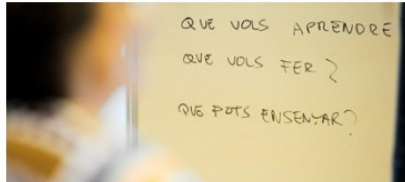 QUE VOLS APRENDRE
QUE VOLS FER?
QUE POTS ENSENYAR?